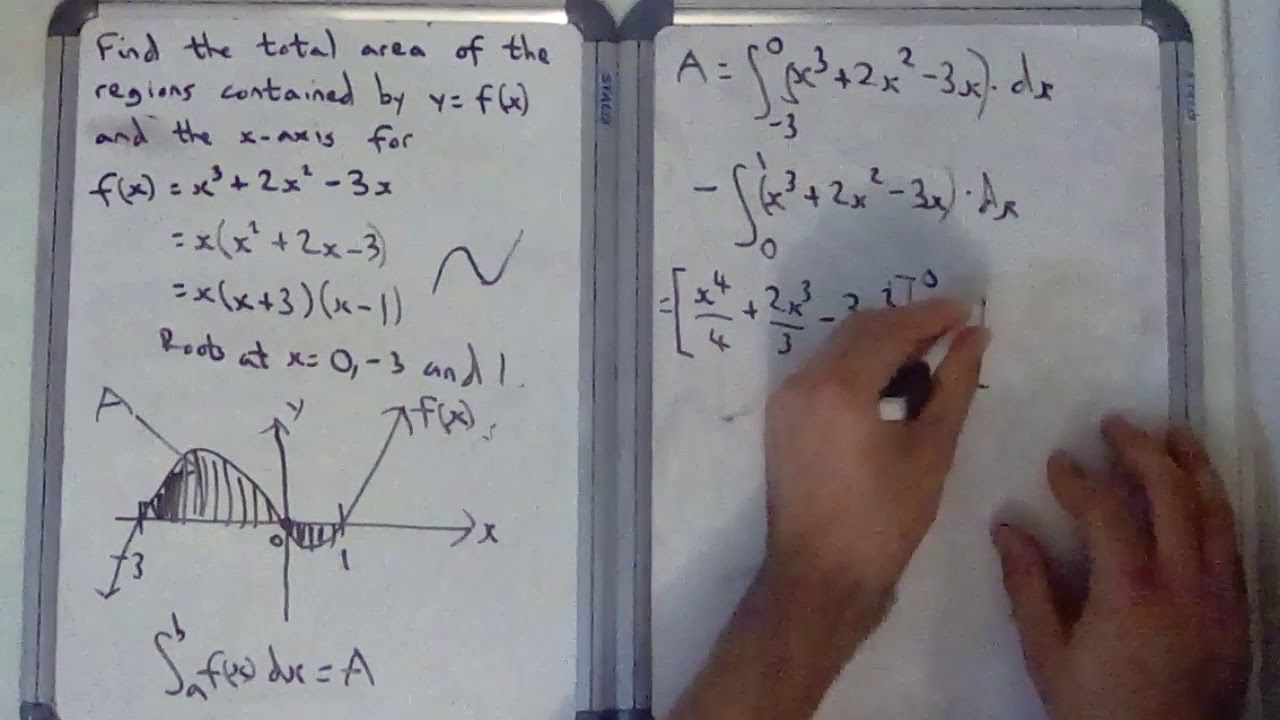 Find the total area of the
regions contained by y = f(x)
and the x-axis for
f(x) = x³ + 2x² - 3x
= x(x² + 2x - 3)
= x(x + 3)(x - 1)
Roots at x = 0, -3 and 1.
A
y
f(x)
x
-3
0
1
∫ₐᵇ f(x) dx = A
STAPLES
A = ∫₋₃⁰ (x³ + 2x² - 3x) · dx
- ∫₀¹ (x³ + 2x² - 3x) · dx
= [ x⁴/4 + 2x³/3 - 3 ² ]⁰